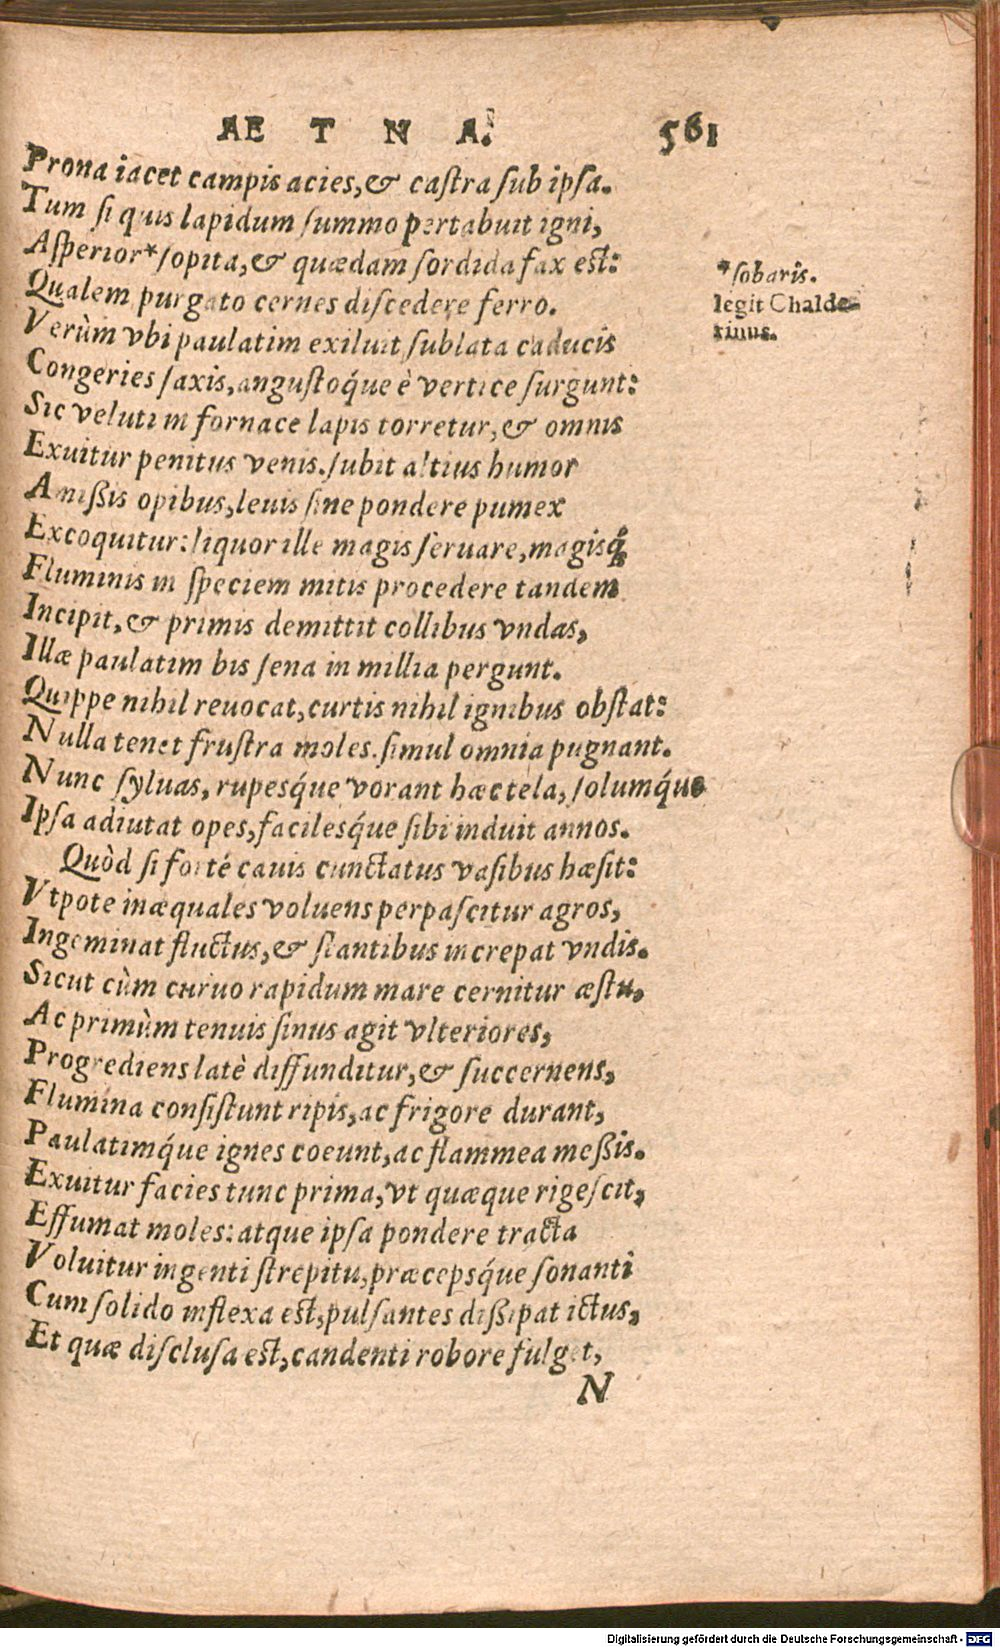 AE T N A. 561
Prona iacet campis acies, & caſtra ſub ipſa.
Tum ſi quis lapidum ſummo pertabuit igni,
Aſperior* ſopita, & quædam ſordida fax eſt:
Qualem purgato cernes diſcedere ferro.
Verùm vbi paulatim exiluit ſublata caducis
Congeries ſaxis, anguſtoq́ue è vertice ſurgunt:
Sic veluti in fornace lapis torretur, & omnis
Exuitur penitus venis. ſubit altius humor
Amißis opibus, leuis ſine pondere pumex
Excoquitur: liquor ille magis feruare, magisq́;
Fluminis in ſpeciem mitis procedere tandem
Incipit, & primis demittit collibus vndas,
Illæ paulatim bis ſena in millia pergunt.
Quippe nihil reuocat, curtis nihil ignibus obſtat:
Nulla tenet fruſtra moles. ſimul omnia pugnant.
Nunc ſyluas, rupesq́ue vorant hæc tela, ſolumq́ue
Ipſa adiutat opes, facilesq́ue ſibi induit annos.
Quòd ſi forté cauis cunctatus vaſibus hæſit:
Vtpote inæquales voluens perpaſcitur agros,
Ingeminat fluctus, & ſtantibus increpat vndis.
Sicut cùm curuo rapidum mare cernitur æſtu,
Ac primùm tenuis ſinus agit vlteriores,
Progrediens latè diffunditur, & ſuccernens,
Flumina conſiſtunt ripis, ac frigore durant,
Paulatimq́ue ignes coeunt, ac flammea meßis.
Exuitur facies tunc prima, vt quæque rigeſcit,
Effumat moles: atque ipſa pondere tracta
Voluitur ingenti ſtrepitu, præcepsq́ue ſonanti
Cum ſolido inflexa eſt, pulſantes dißipat ictus,
Et quæ diſcluſa eſt, candenti robore fulget,
N
* ſobaris.
legit Chalde-
rinus.
Digitalisierung gefördert durch die Deutsche Forschungsgemeinschaft - DFG